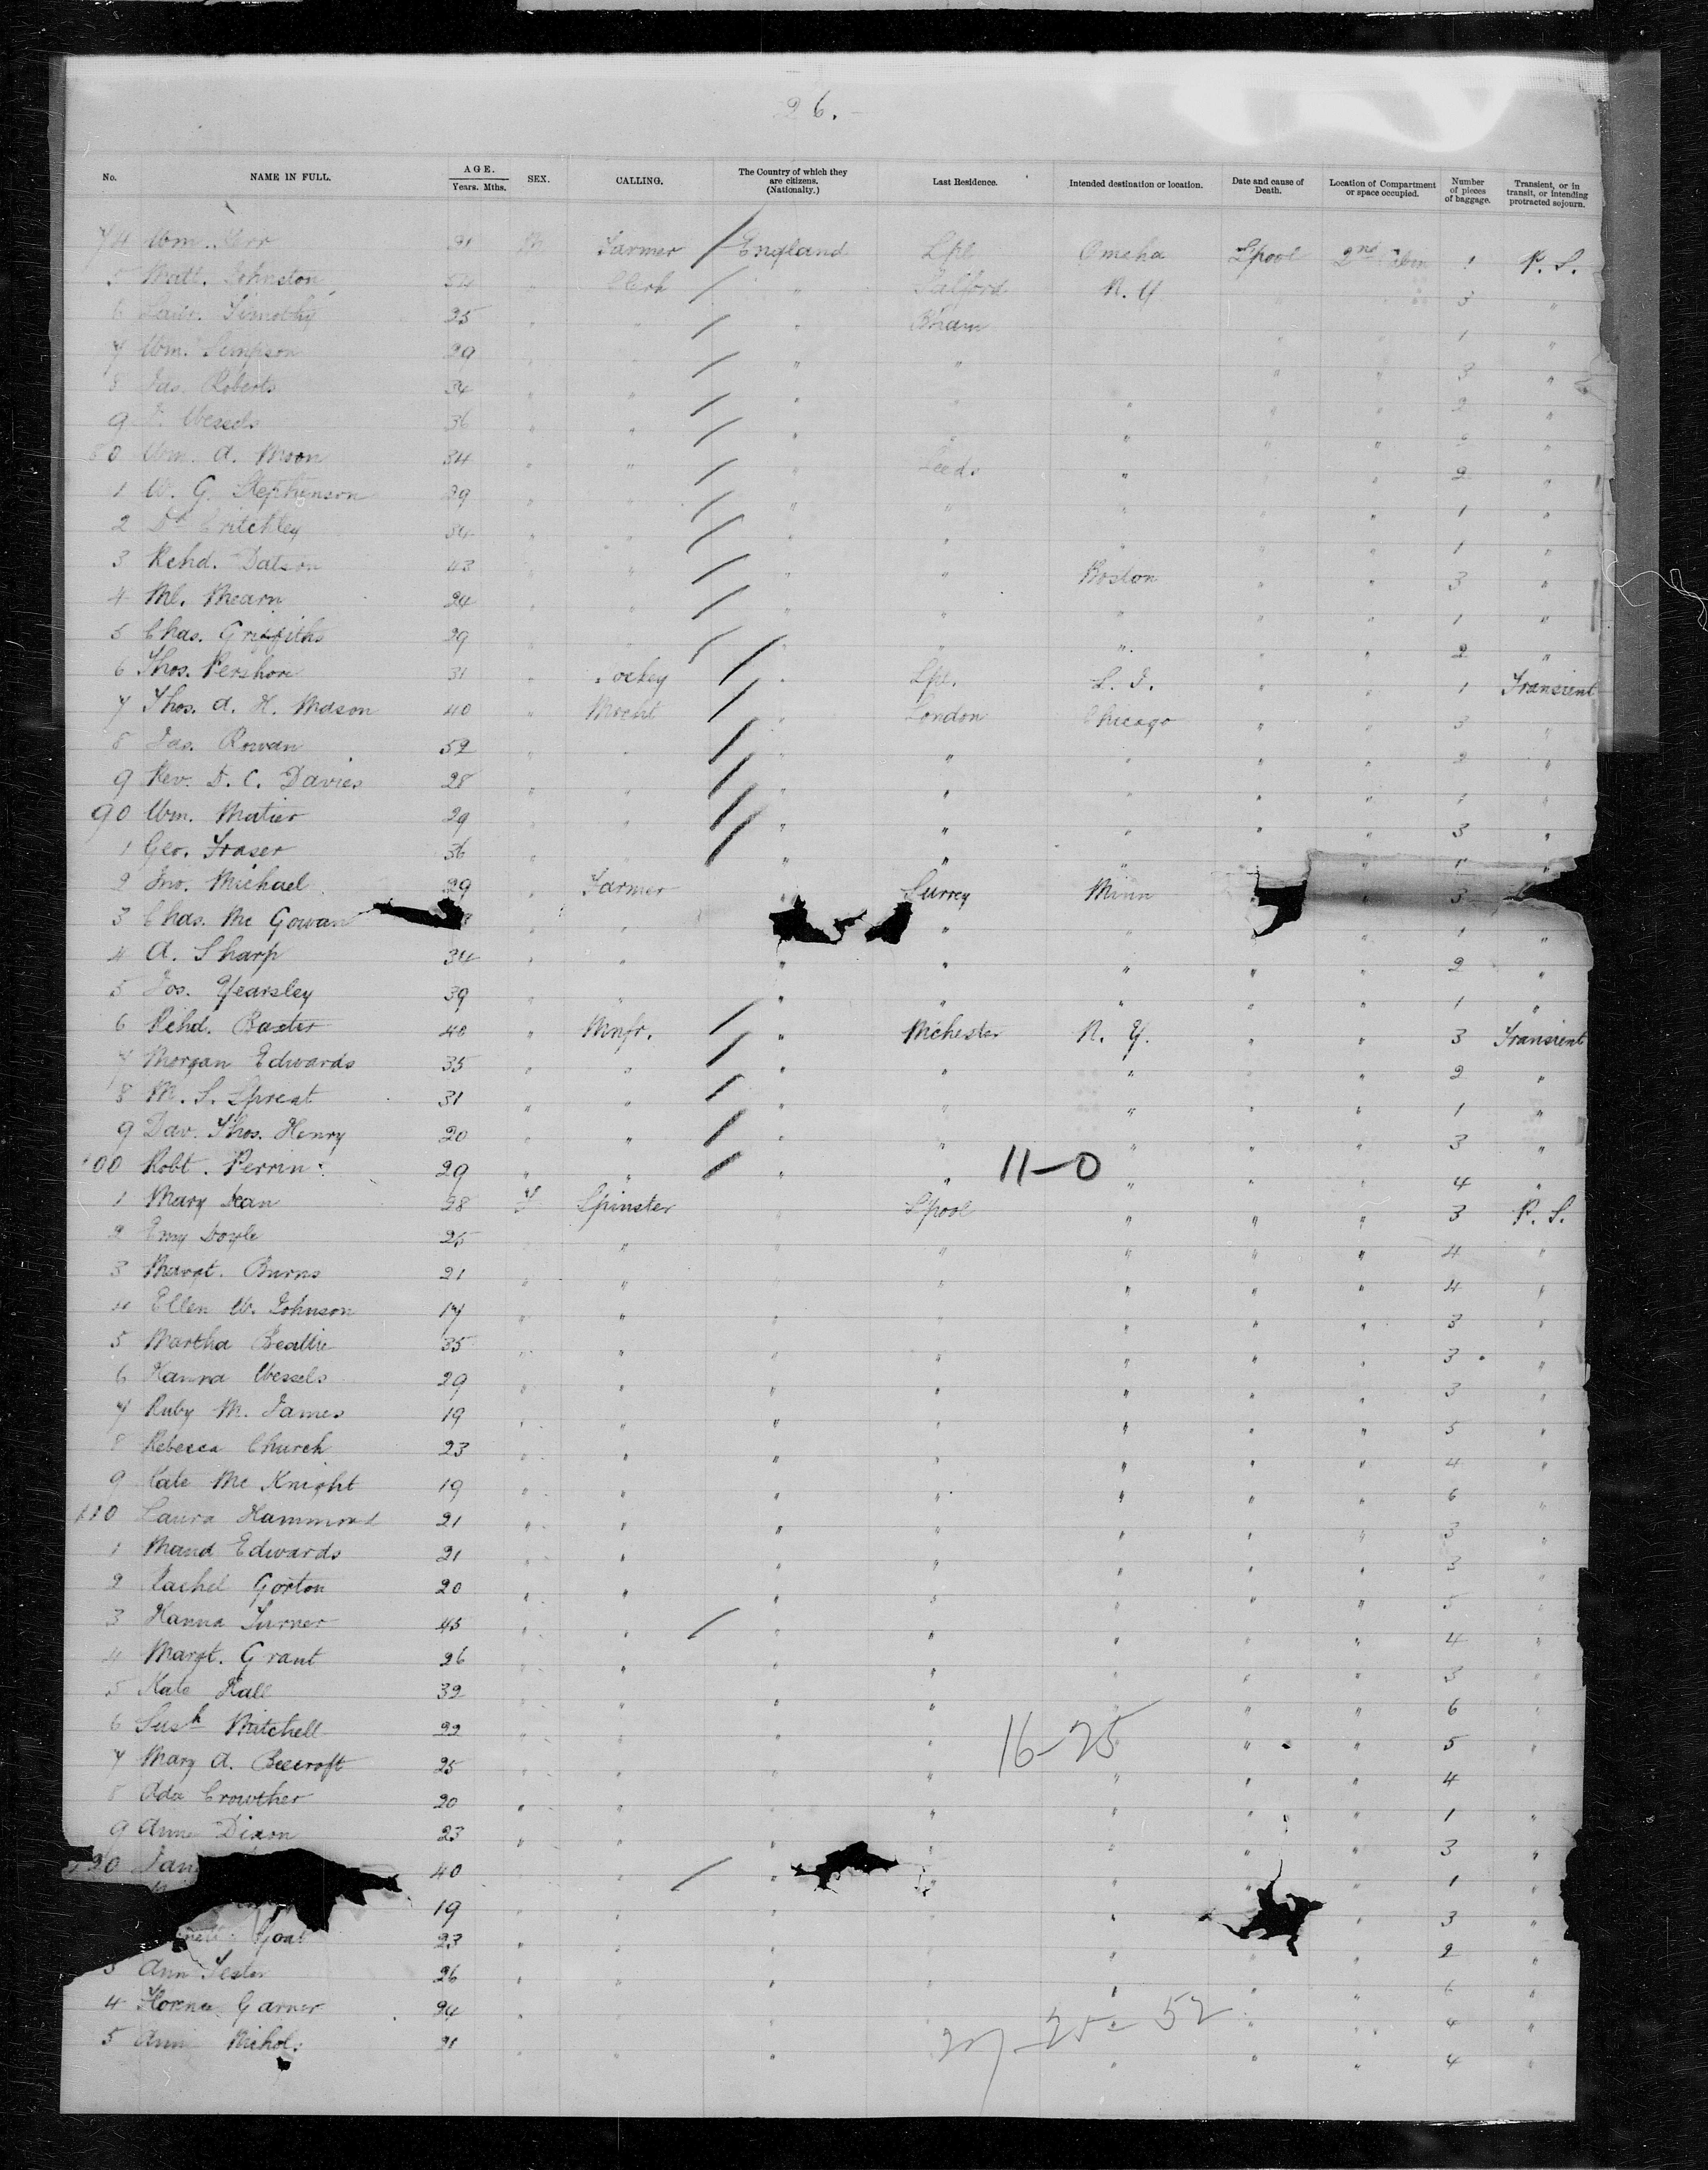 26.
No. NAME IN FULL. AGE. Years. Mths. SEX. CALLING. The Country of which they are citizens. (Nationalty.) Last Residence. Intended destination or location. Date and cause of Death. Location of Compartment or space occupied. Number of pieces of baggage. Transient, or in transit, or intending protracted sojourn.
74 Wm. Kerr M Farmer England Lpl Omaha Lpool 2nd 1 P. S.
5 Matt. Johnston " Clerk " Salford N. Y 3 "
6 Timothy 25 " " " Bham 1 "
7 Wm. Simpson 29 " " " 3 "
8 Jas. Roberts 34 " " " " 2 "
9 Wessels 36 " " " " " "
80 Wm. A. Moon 34 " " " Leeds " " 2 "
1 W. G. Stephenson 29 " " " " " " 1 "
2 Critchley 34 " " " " " " 1 "
3 Rchd. Datson 43 " " " " Boston " " 3 "
4 Ml. Mearn 24 " " " " " " " 1 "
5 Chas. Griffiths 29 " " " " " " " 2 "
6 Thos. Pershore 31 " Jockey " Lpl. L. I. " " 1 Transient
7 Thos. A. H. Mason 40 " Mercht " London Chicago " " 3 "
8 Jas. Rowan 52 " " " " " " " 2 "
9 Rev. D. C. Davies 28 " " " " " " " 1 "
90 Wm. Matier 29 " " " " " " " 3 "
1 Geo. Fraser 36 " " " " " " 1 "
2 Jno. Michael 29 " Farmer " Surrey Minn " 3
3 Chas. Mc Gowan " " " " " 1 "
4 A. Sharp 34 " " " " " " " 2 "
5 Jos. Yearsley 39 " " " " " " " 1 "
6 Rchd. Baxter 40 " Mnfr. " Mchester N. Y. " " 3 Transient
7 Morgan Edwards 35 " " " " " " 2 "
8 M. S. Spreat 31 " " " " " " 1 "
9 Dav. Thos. Henry 20 " " " " " " " 3 "
100 Robt. Perrin 29 " " " " 11-0 " " " 4 "
1 Mary Dean 28 F Spinster " Lpool " " " 3 P. S.
2 Emy Doyle 25 " " " " " " " 4 "
3 Margt. Burns 21 " " " " " " " 4 "
4 Ellen W. Johnson 17 " " " " " " " 3 "
5 Martha Beattie 35 " " " " " " " 3 "
6 Hanna Wessels 29 " " " " " " " 3 "
7 Ruby M. James 19 " " " " " " " 5 "
8 Rebecca Church 23 " " " " " " " 4 "
9 Kate Mc Knight 19 " " " " " " " 6 "
110 Laura Hammond 21 " " " " " " " 3 "
1 Maud Edwards 21 " " " " " " " 3 "
2 Rachel Gorton 20 " " " " " " " 5 "
3 Hanna Turner 45 " " " " " " " 4 "
4 Margt. Grant 26 " " " " " " " 3 "
5 Kate Hall 32 " " " " " " 6
6 Sush Mitchell 22 " " " " 16-25 " " " 5 "
7 Mary A. Beecroft 25 " " " " " " " 4
8 Ada Crowther 20 " " " " " " 1 "
9 Anne Dixon 23 " " " " " " 3 "
120 Jane 40 " " " " " " 1 "
19 " " " " 3 "
23 " " " " " 2 "
3 Ann 26 " " " " " 6 "
4 Florence Garner 24 " " " 27-25=52 " " 4 "
5 Annie Nichol 21 " " " " " " 4 "